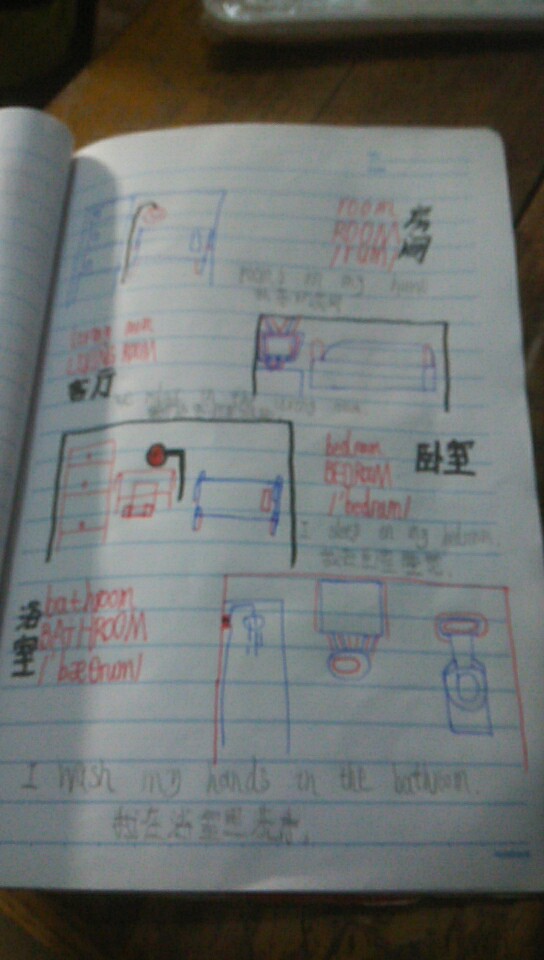 room
ROOM
/rum/
房间
in my
living room
LIVING ROOM
客厅
we in the living room.
bedroom
BEDROOM
/'bedrum/
卧室
I sleep in my bedroom.
我在卧室睡觉.
bathroom
BATHROOM
/'bæθrum/
浴室
I wash my hands in the bathroom.
我在浴室里洗手.